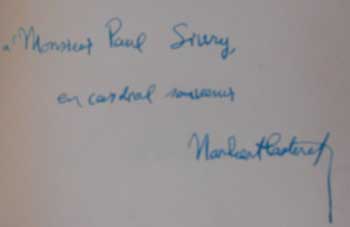 à Monsieur Paul Sivry,
en cordial souvenir
Norbert Casteret